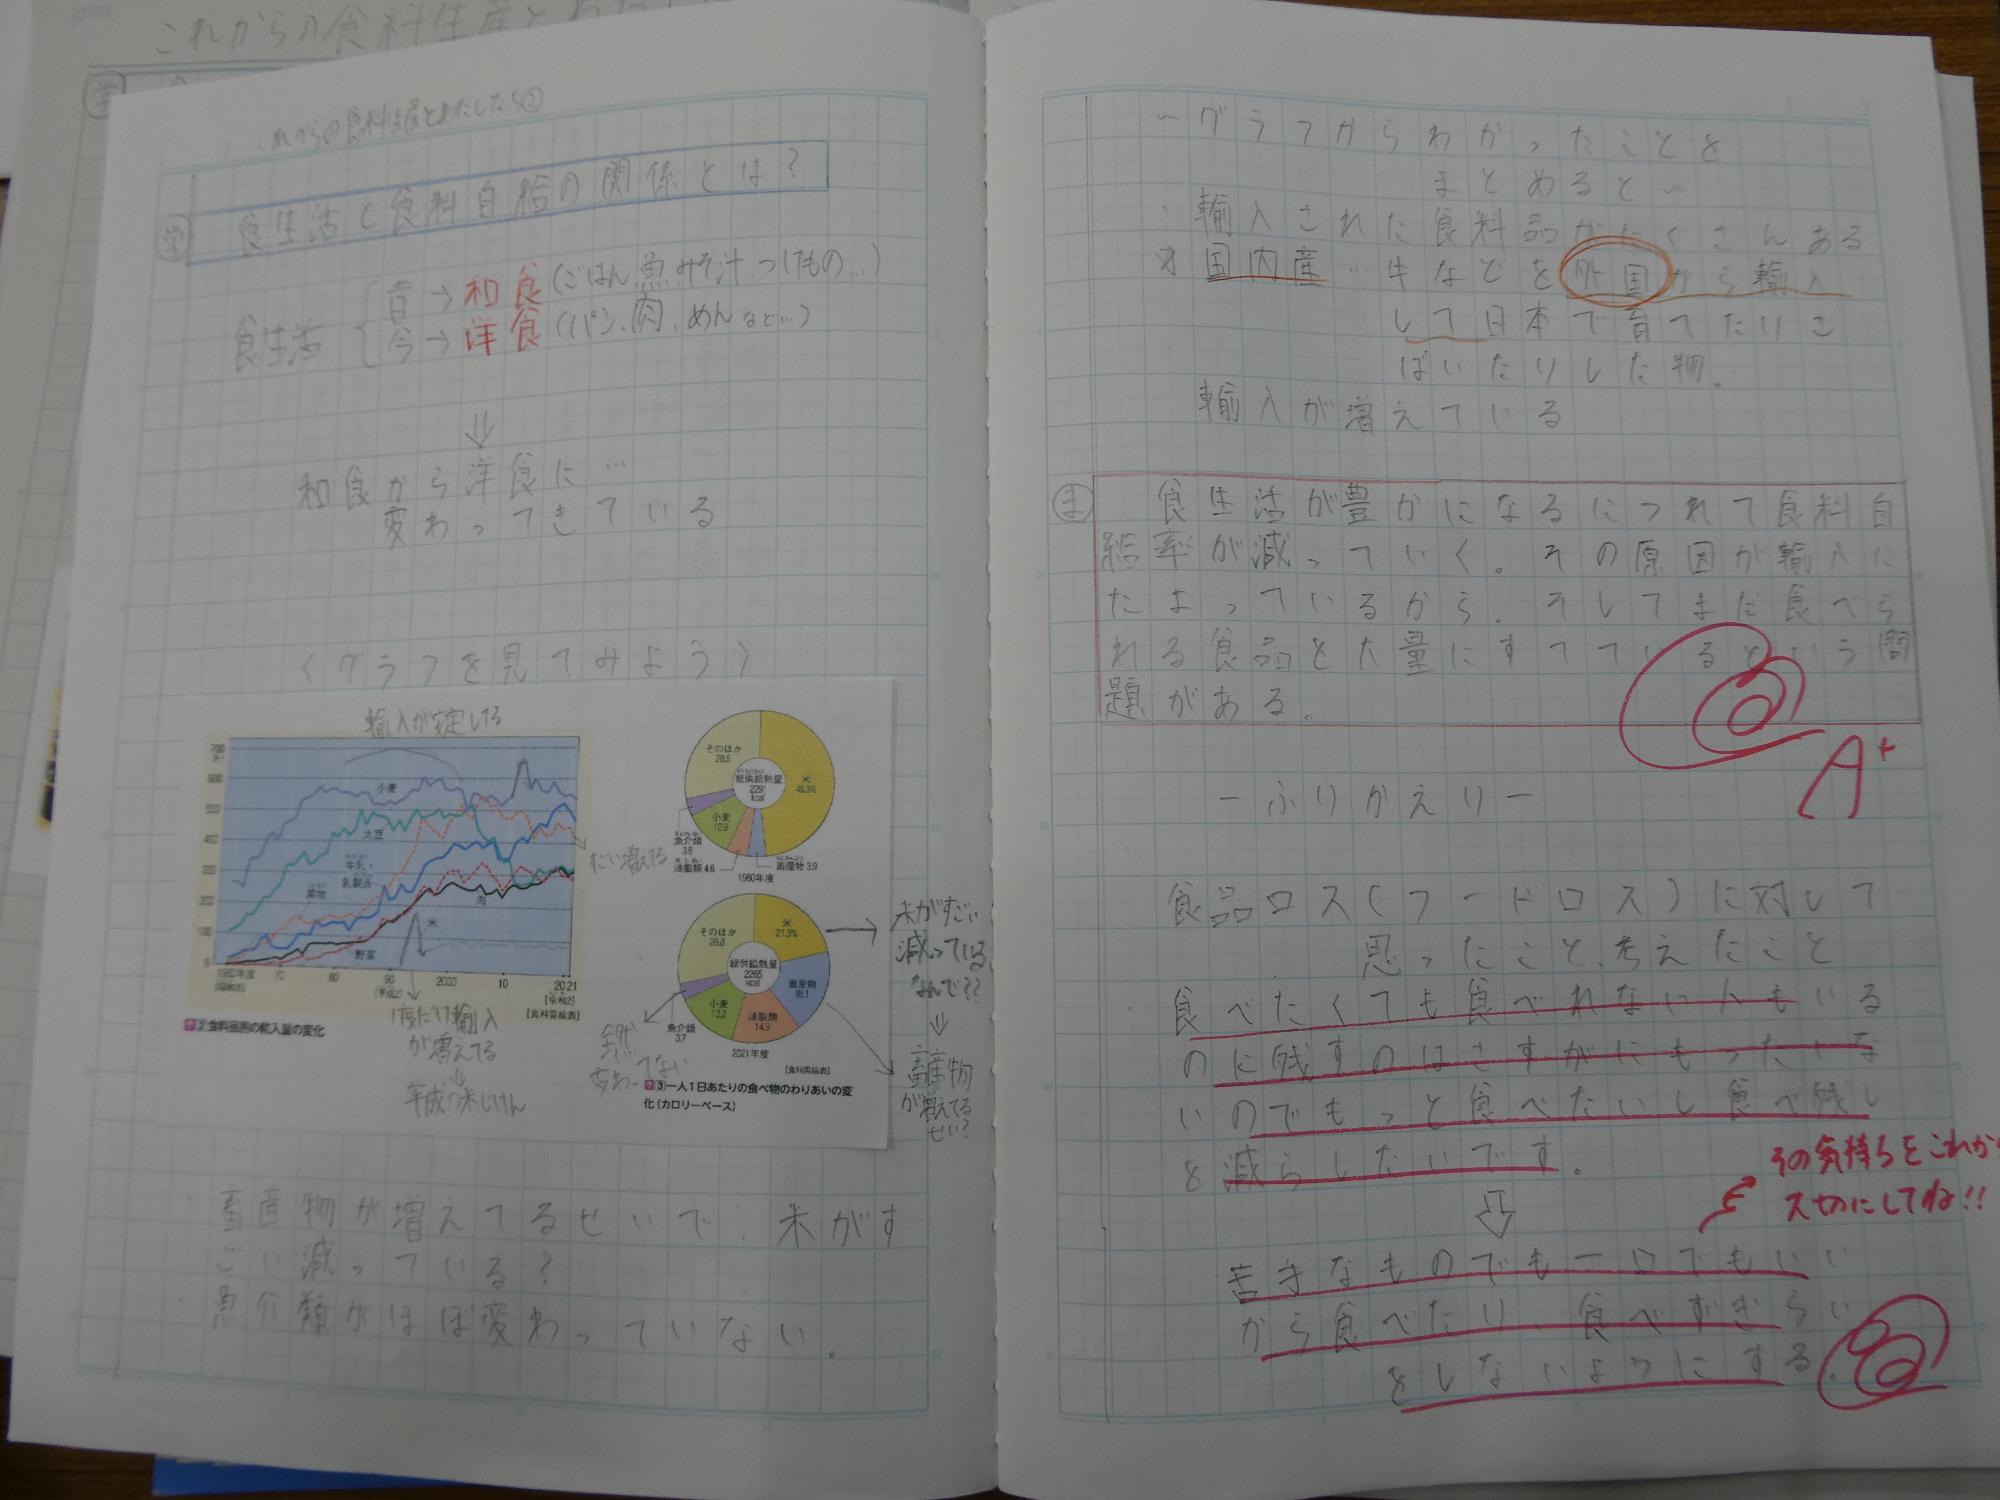 これからの食料生産とわたし
学
これからの食料生産とわたしたち②
学 食生活と食料自給の関係とは？
食生活
昔→和食(ごはん魚みそ汁つけもの…)
今→洋食(パン、肉、めんなど…)
⇓
和食から洋食に…
変わってきている
〈グラフを見てみよう〉
輸入が安定してる
700
600
500
400
300
200
100
0
小麦
大豆
牛乳・
乳製品
果物
肉
米
野菜
1960年度
70
80
90
[平成2]
2000
10
2021
[令和2]
[食料需給表]
すごい増えてる
1度だけ輸入
が増えてる
↓
平成の米じけん
②食料品別の輸入量の変化
そのほか
28.5
米
48.3%
総供給熱量
2291
kcal
小麦
10.9
魚介類
3.8
油脂類 4.6
畜産物 3.9
1960年度
そのほか
28.8
米
21.3%
総供給熱量
2265
kcal
畜産物
18.1
小麦
13.2
油脂類
14.9
魚介類
3.7
2021年度
[食料需給表]
米がすごい
減っている
なんで??
⇓
畜産物
が増えてる
せい?
全然
変わってない
③一人1日あたりの食べ物のわりあいの変
化(カロリーベース)
・畜産物が増えてるせいで、米がす
ごい減っている?
・魚介類がほぼ変わっていない。
〜グラフからわかったことを
まとめると〜
・輸入された食料品がたくさんある
国内産…牛などを外国から輸入
して日本で育てたりさ
ばいたりした物。
輸入が増えている
ま 食生活が豊かになるにつれて食料自
給率が減っていく。その原因が輸入に
たよっているから。そしてまだ食べら
れる食品を大量にすてているという問
題がある。
A+
ーふりかえりー
食品ロス(フードロス)に対して
思ったこと、考えたこと
・食べたくても食べれない人もいる
のに残すのはさすがにもったいな
いのでもっと食べたいし食べ残し
を減らしたいです。
その気持ちをこれか
大切にしてね!!
⇓
苦手なものでも一口でもいい
から食べたり、食べずぎらい
をしないようにする。